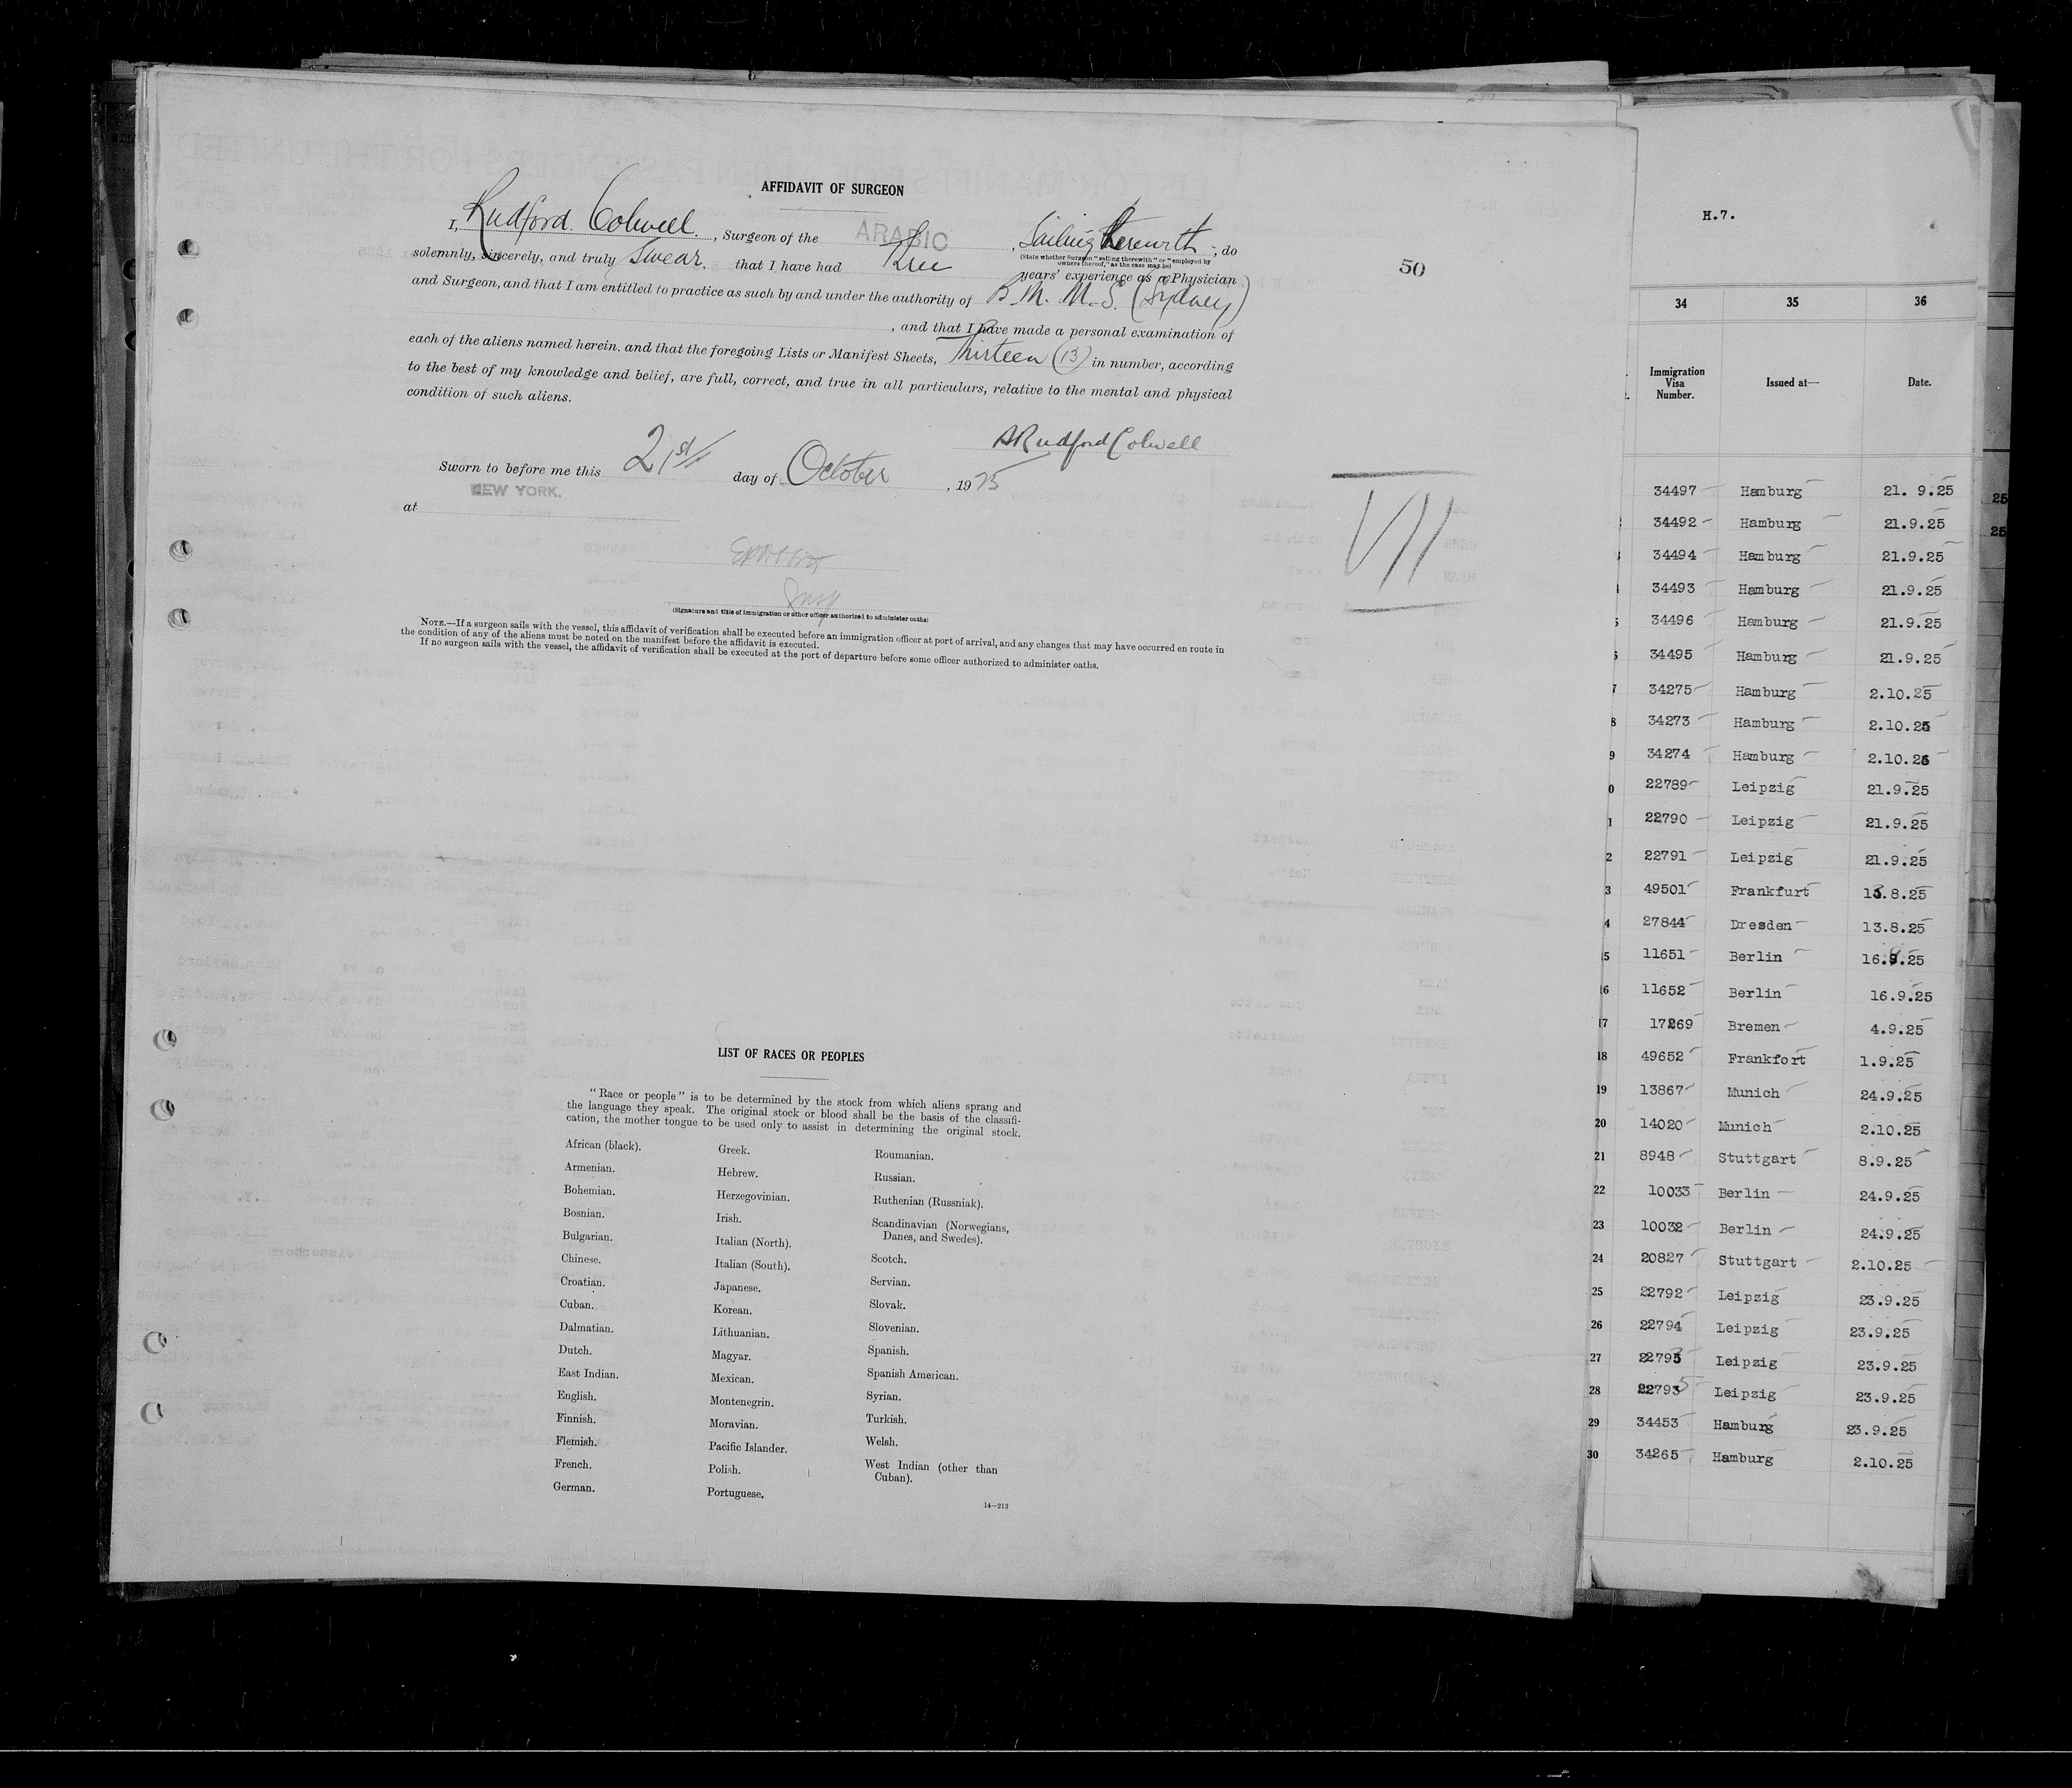 AFFIDAVIT OF SURGEON
I, Rudford Colwell, Surgeon of the ARABIC, Sailing therewith; do
(State whether Surgeon "sailing therewith" or "employed by
owners thereof," as the case may be)
solemnly, sincerely, and truly Swear. that I have had three years' experience as a Physician
and Surgeon, and that I am entitled to practice as such by and under the authority of B. M. M. S. (Sydney)
, and that I have made a personal examination of
each of the aliens named herein, and that the foregoing Lists or Manifest Sheets, Thirteen (13) in number, according
to the best of my knowledge and belief, are full, correct, and true in all particulars, relative to the mental and physical
condition of such aliens.
A Rudford Colwell
Sworn to before me this 21st day of October, 1925
at NEW YORK.
Insp
(Signature and title of immigration or other officer authorized to administer oaths)
NOTE.—If a surgeon sails with the vessel, this affidavit of verification shall be executed before an immigration officer at port of arrival, and any changes that may have occurred en route in
the condition of any of the aliens must be noted on the manifest before the affidavit is executed.
If no surgeon sails with the vessel, the affidavit of verification shall be executed at the port of departure before some officer authorized to administer oaths.
50
VII
LIST OF RACES OR PEOPLES
"Race or people" is to be determined by the stock from which aliens sprang and
the language they speak. The original stock or blood shall be the basis of the classifi-
cation, the mother tongue to be used only to assist in determining the original stock.
African (black).
Armenian.
Bohemian.
Bosnian.
Bulgarian.
Chinese.
Croatian.
Cuban.
Dalmatian.
Dutch.
East Indian.
English.
Finnish.
Flemish.
French.
German.
Greek.
Hebrew.
Herzegovinian.
Irish.
Italian (North).
Italian (South).
Japanese.
Korean.
Lithuanian.
Magyar.
Mexican.
Montenegrin.
Moravian.
Pacific Islander.
Polish.
Portuguese.
Roumanian.
Russian.
Ruthenian (Russniak).
Scandinavian (Norwegians,
Danes, and Swedes).
Scotch.
Servian.
Slovak.
Slovenian.
Spanish.
Spanish American.
Syrian.
Turkish.
Welsh.
West Indian (other than
Cuban).
14—213
H.7.
34 35 36
Immigration
Visa
Number.
Issued at—
Date.
34497 Hamburg 21. 9.25
34492 Hamburg 21.9.25
34494 Hamburg 21.9.25
34493 Hamburg 21.9.25
34496 Hamburg 21.9.25
34495 Hamburg 21.9.25
7 34275 Hamburg 2.10.25
8 34273 Hamburg 2.10.25
9 34274 Hamburg 2.10.25
0 22789 Leipzig 21.9.25
1 22790 Leipzig 21.9.25
2 22791 Leipzig 21.9.25
3 49501 Frankfurt 13.8.25
4 27844 Dresden 13.8.25
15 11651 Berlin 16.9.25
16 11652 Berlin 16.9.25
17 17269 Bremen 4.9.25
18 49652 Frankfort 1.9.25
19 13867 Munich 24.9.25
20 14020 Munich 2.10.25
21 8948 Stuttgart 8.9.25
22 10033 Berlin 24.9.25
23 10032 Berlin 24.9.25
24 20827 Stuttgart 2.10.25
25 22792 Leipzig 23.9.25
26 22794 Leipzig 23.9.25
27 22793 Leipzig 23.9.25
28 22795 Leipzig 23.9.25
29 34453 Hamburg 23.9.25
30 34265 Hamburg 2.10.25
25
25